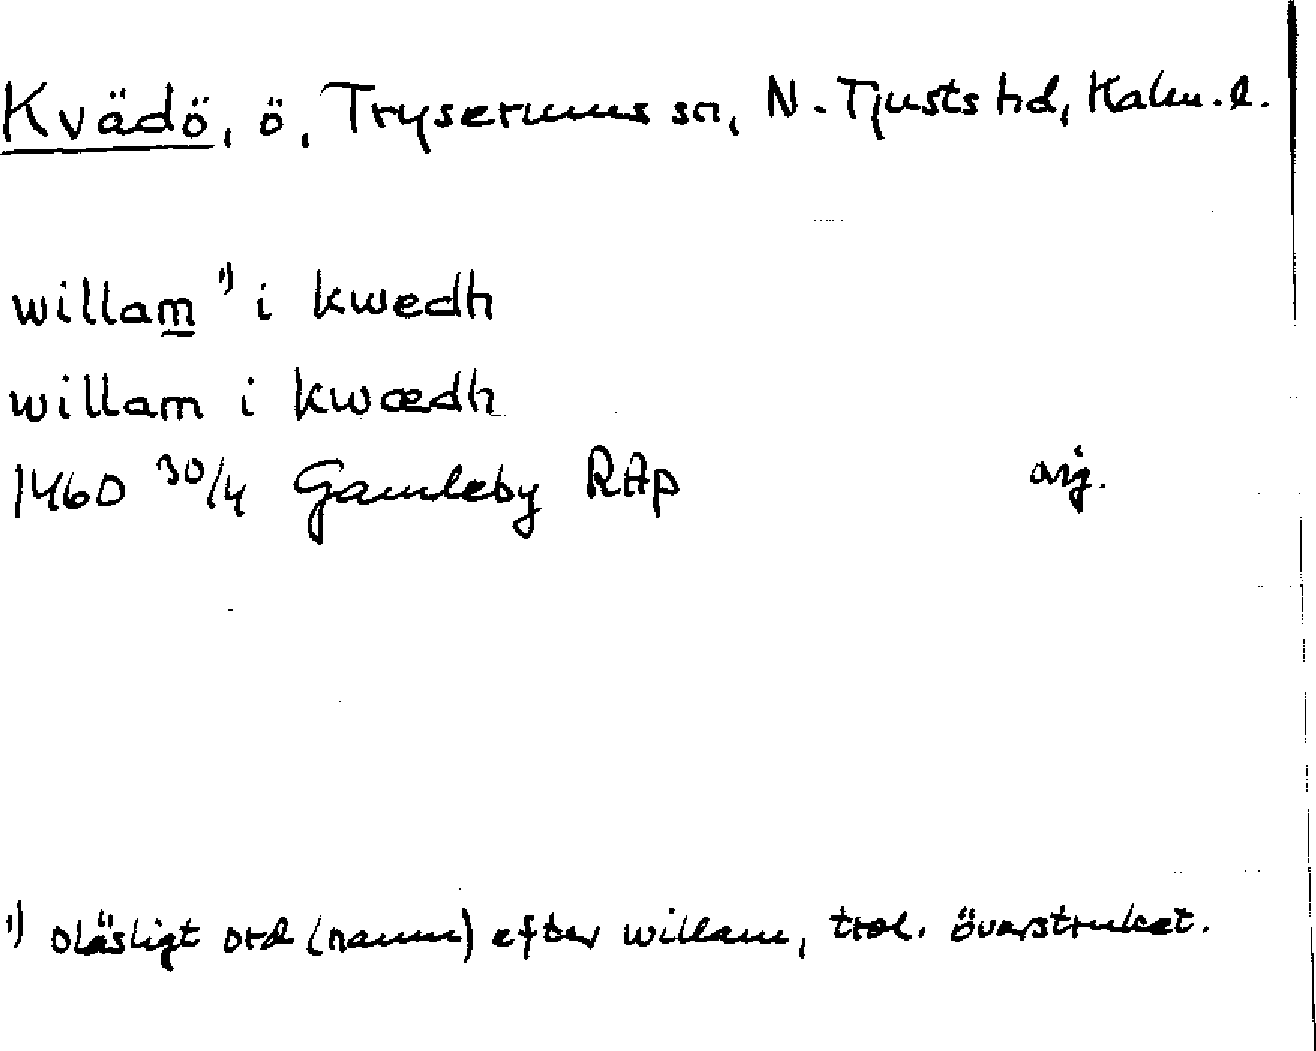 Kvädö, ö, Tryserums sn, N. Tjusts hd, Kalm. l.
willam ¹) i kwedh
willam i kwædh
1460 30/4 Gamleby RAp orig.
¹) oläsligt ord (namn) efter willam, trol. överstruket.